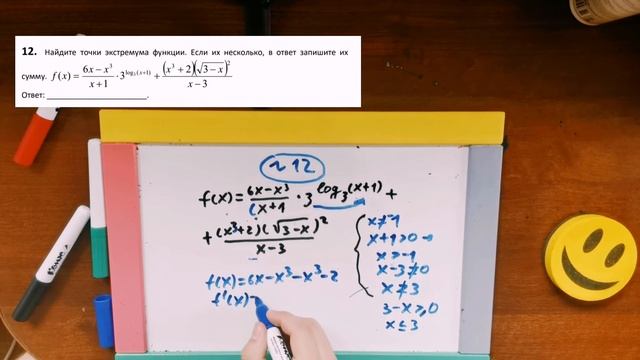 12. Найдите точки экстремума функции. Если их несколько, в ответ запишите их
сумму. f(x) = (6x − x³)/(x + 1) · 3^(log₃(x+1)) + ((x³ + 2)(√(3 − x))²)/(x − 3)
Ответ: ____________________.
~12
f(x) = (6x−x³)/(x+1) · 3^(log₃(x+1)) +
+ ((x³+2)(√(3−x))²)/(x−3)
f(x) = 6x − x³ − x³ − 2
f'(x) =
x ≠ −1
x+1 > 0
x > −1
x−3 ≠ 0
x ≠ 3
3−x ≥ 0
x ≤ 3